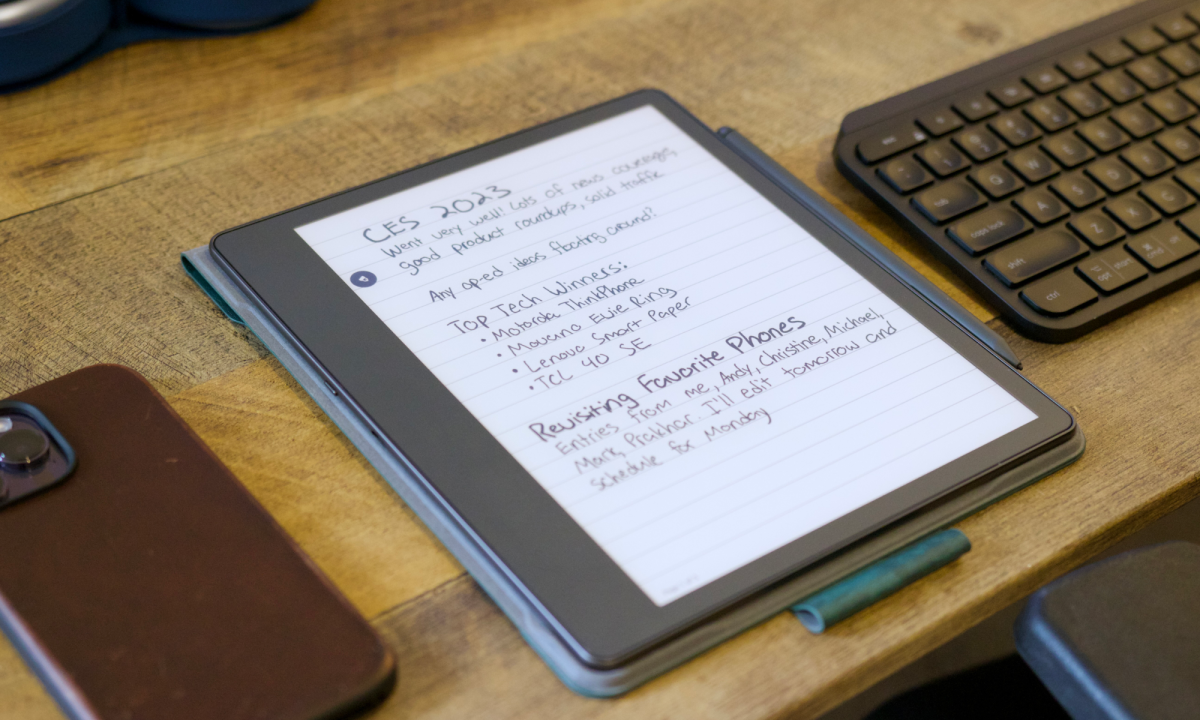 CES 2023
Went very well! Lots of news coverage,
good product roundups, solid traffic
Any op-ed ideas floating around?
Top Tech Winners:
• Motorola ThinkPhone
• Movano Evie Ring
• Lenovo Smart Paper
• TCL 40 SE
Revisiting Favorite Phones
Entries from me, Andy, Christine, Michael,
Mark, Prakhar. I'll edit tomorrow and
schedule for Monday
esc
tab Q W
caps lock A S D
shift Z X C
ctrl opt